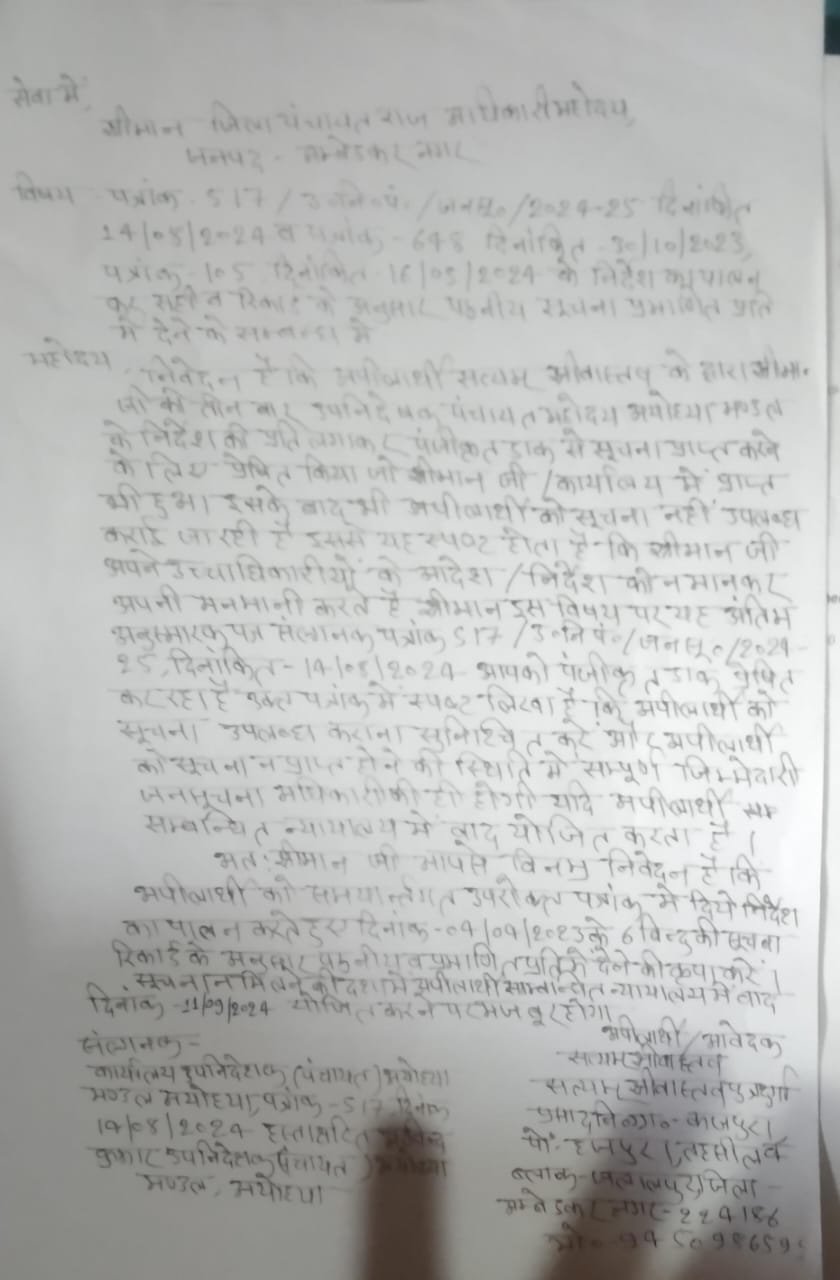 सेवा में,
श्रीमान जिला पंचायत राज अधिकारी महोदय,
जनपद - अम्बेडकर नगर
विषय - पत्रांक - 517 / उ०नि०पं० / जन०सू० / 2024-25 दिनांकित
14/08/2024 व पत्रांक - 648 दिनांकित - 30/10/2023,
पत्रांक - 105 दिनांकित - 16/05/2024 के निर्देश का पालन
कर सही व रिकार्ड के अनुसार पठनीय सूचना प्रमाणित प्रति
में देने के सम्बन्ध में
महोदय,
निवेदन है कि अपीलार्थी सत्यम श्रीवास्तव के द्वारा श्रीमान
जी को तीन बार उपनिदेशक पंचायत महोदय अयोध्या मण्डल
के निर्देश की प्रति लगाकर पंजीकृत डाक से सूचना प्राप्त करने
के लिए प्रेषित किया जो श्रीमान जी / कार्यालय में प्राप्त
भी हुआ। इसके बाद भी अपीलार्थी को सूचना नहीं उपलब्ध
कराई जा रही है इससे यह स्पष्ट होता है कि श्रीमान जी
अपने उच्चाधिकारीयों के आदेश / निर्देश को न मानकर
अपनी मनमानी करते हैं श्रीमान इस विषय पर यह अंतिम
अनुस्मारक पत्र संलग्नक पत्रांक 517 / उ०नि०पं० / जन०सू० / 2024-
25, दिनांकित - 14/08/2024 - आपको पंजीकृत डाक प्रेषित
कर रहा है उक्त पत्रांक में स्पष्ट लिखा है कि अपीलार्थी को
सूचना उपलब्ध कराना सुनिश्चित करें और अपीलार्थी
को सूचना न प्राप्त होने की स्थिति में सम्पूर्ण जिम्मेदारी
जनसूचना अधिकारी की ही होगी यदि अपीलार्थी
सम्बन्धित न्यायालय में वाद योजित करता है।
अतः श्रीमान जी आपसे विनम्र निवेदन है कि
अपीलार्थी को समयान्तर्गत उपरोक्त पत्रांक में दिये निर्देश
का पालन करते हुए दिनांक - 04/09/2023 के 6 बिन्दु की सूचना
रिकार्ड के अनुसार पठनीय व प्रमाणित प्रति में देने की कृपा करें।
सूचना न मिलने की दशा में अपीलार्थी सम्बन्धित न्यायालय में वाद
योजित करने पर मजबूर होगा
दिनांक - 11/09/2024
अपीलार्थी / आवेदक
सत्यम श्रीवास्तव
सत्यम श्रीवास्तव पुत्र
प्रसाद
पो०
ब्लाक - जलालपुर, जिला -
अम्बेडकर नगर - 224186
मो० - 945098659
संलग्नक -
कार्यालय उपनिदेशक (पंचायत) अयोध्या
मण्डल अयोध्या, पत्रांक - 517 दिनांक
14/08/2024 हस्ताक्षरित
कुमार उपनिदेशक (पंचायत) अयोध्या
मण्डल, अयोध्या